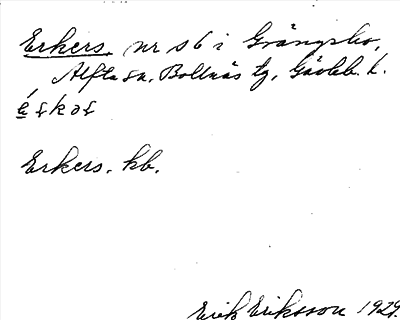 Erkers. nr s6 i Grängsbo,
Alfta sn, Bollnäs tg, Gävleb. l.
Erkers. kb.
Erik Eriksson 1929.